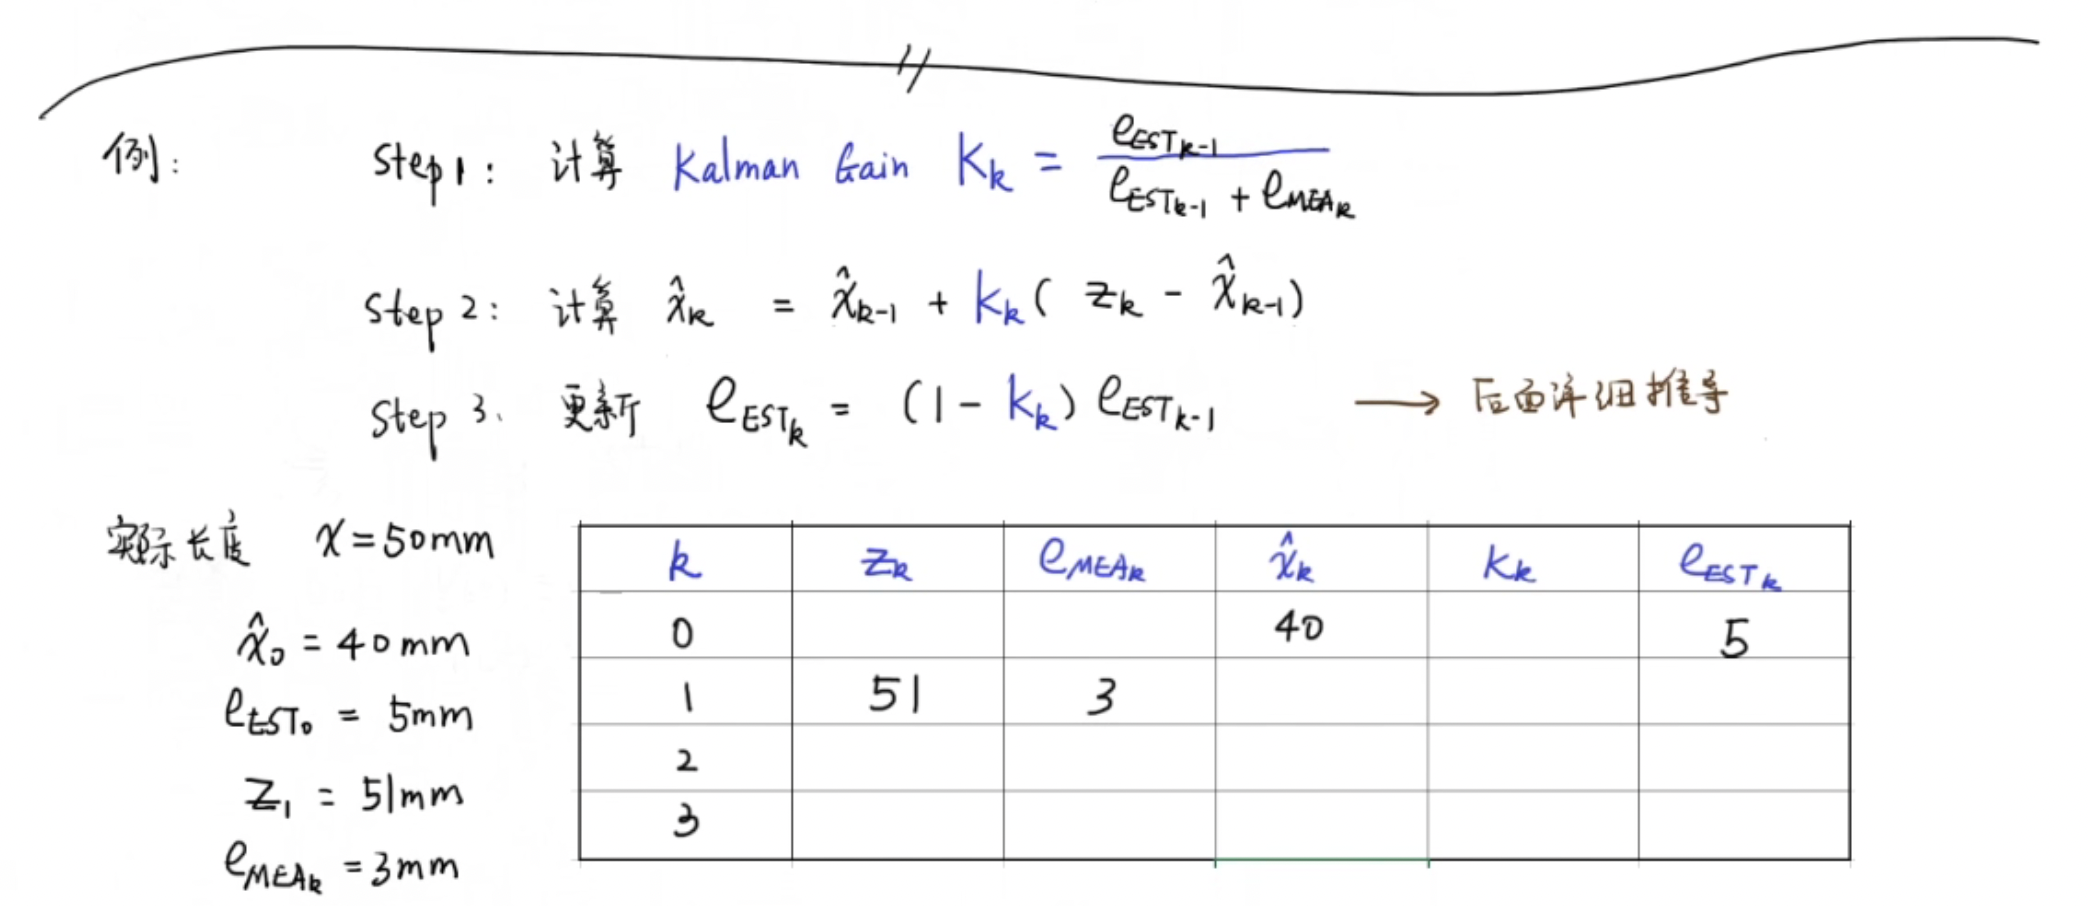 例: Step1: 计算 Kalman Gain Kk = eESTk-1 / (eESTk-1 + eMEAk)
Step 2: 计算 x̂k = x̂k-1 + Kk( zk - x̂k-1)
Step 3. 更新 eESTk = (1 - Kk) eESTk-1 → 后面详细推导
实际长度 x=50mm
x̂0 = 40mm
eEST0 = 5mm
z1 = 51mm
eMEAk = 3mm
k zk eMEAk x̂k Kk eESTk
0 40 5
1 51 3
2
3